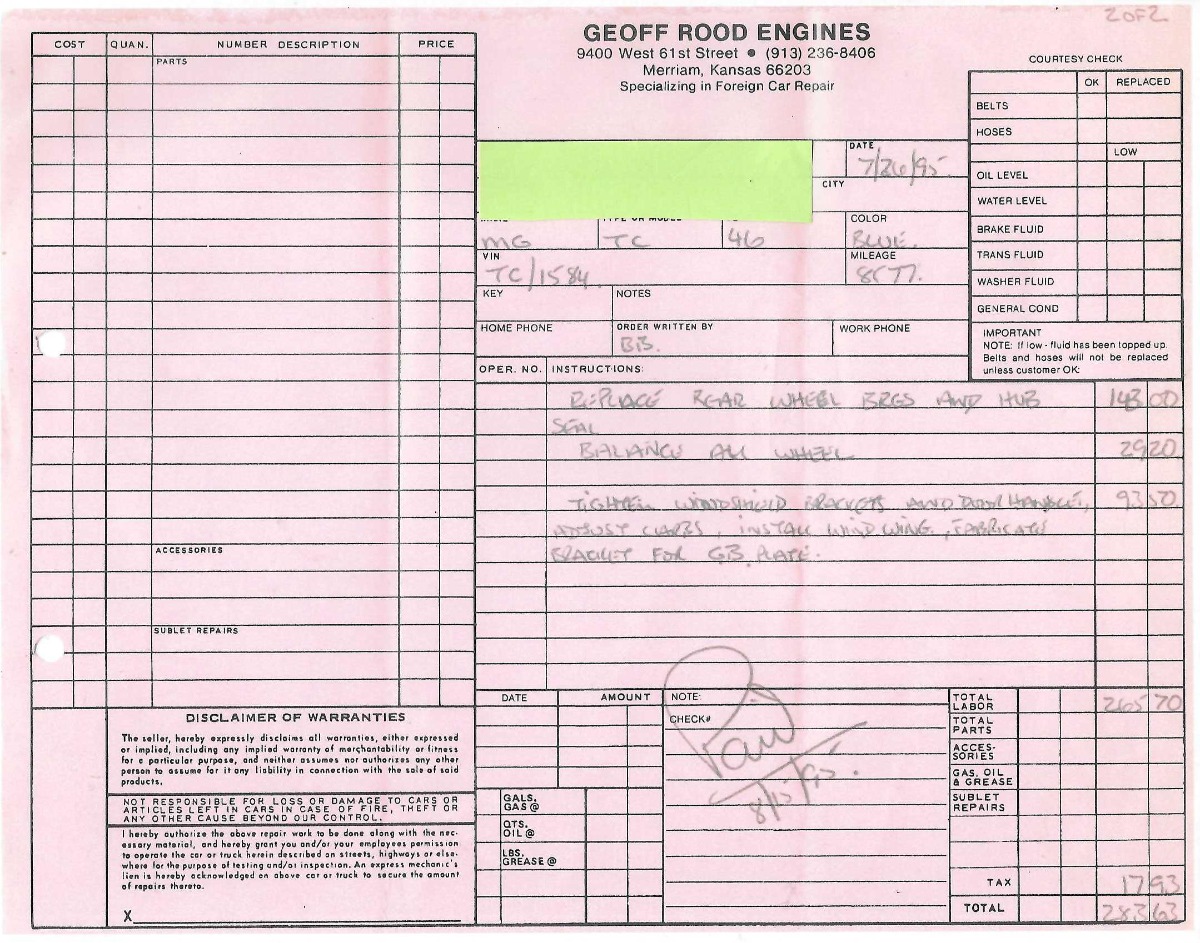 2 OF 2
GEOFF ROOD ENGINES
9400 West 61st Street • (913) 236-8406
Merriam, Kansas 66203
Specializing in Foreign Car Repair
COST QUAN. NUMBER DESCRIPTION PRICE
PARTS
ACCESSORIES
SUBLET REPAIRS
COURTESY CHECK
OK REPLACED
BELTS
HOSES
LOW
OIL LEVEL
WATER LEVEL
BRAKE FLUID
TRANS FLUID
WASHER FLUID
GENERAL COND
IMPORTANT
NOTE: If low - fluid has been topped up.
Belts and hoses will not be replaced
unless customer OK:
DATE
7/26/95
CITY
TYPE OR MODEL COLOR
MG TC 46 BLUE.
VIN MILEAGE
TC/1584 8577.
KEY NOTES
HOME PHONE ORDER WRITTEN BY WORK PHONE
BB.
OPER. NO. INSTRUCTIONS:
REPLACE REAR WHEEL BRGS AND HUB 143 00
SEAL
BALANCE ALL WHEEL 29 20
TIGHTEN WINDSHIELD BRACKETS AND DOOR HANDLE, 93 50
ADJUST CARBS, INSTALL WIND WING, FABRICATE
BRACKET FOR GB PLATE.
DATE AMOUNT
GALS. GAS @
QTS. OIL @
LBS. GREASE @
NOTE:
CHECK#
Paid
8/15/95.
TOTAL LABOR 265 70
TOTAL PARTS
ACCES- SORIES
GAS, OIL & GREASE
SUBLET REPAIRS
TAX 17 93
TOTAL 283 63
DISCLAIMER OF WARRANTIES
The seller, hereby expressly disclaims all warranties, either expressed
or implied, including any implied warranty of merchantability or fitness
for a particular purpose, and neither assumes nor authorizes any other
person to assume for it any liability in connection with the sale of said
products.
NOT RESPONSIBLE FOR LOSS OR DAMAGE TO CARS OR
ARTICLES LEFT IN CARS IN CASE OF FIRE, THEFT OR
ANY OTHER CAUSE BEYOND OUR CONTROL.
I hereby authorize the above repair work to be done along with the nec-
essary material, and hereby grant you and/or your employees permission
to operate the car or truck herein described on streets, highways or else-
where for the purpose of testing and/or inspection. An express mechanic's
lien is hereby acknowledged on above car or truck to secure the amount
of repairs thereto.
X